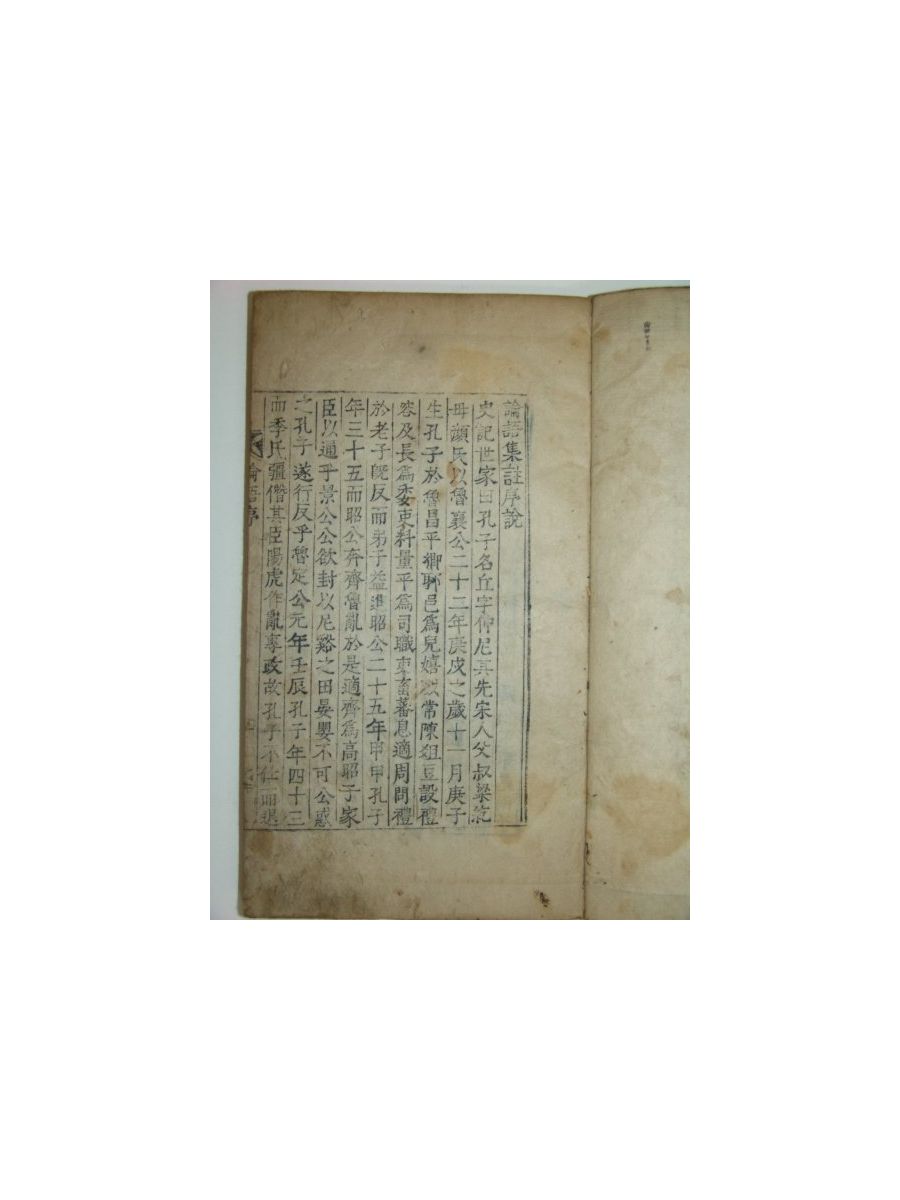 論語集註序說
史記世家曰孔子名丘字仲尼其先宋人父叔梁紇
母顔氏以魯襄公二十二年庚戌之歲十一月庚子
生孔子於魯昌平鄉郰邑爲兒嬉戱常陳俎豆設禮
容及長爲委吏料量平爲司職吏畜蕃息適周問禮
於老子旣反而弟子益進昭公二十五年甲申孔子
年三十五而昭公奔齊魯亂於是適齊爲高昭子家
臣以通乎景公公欲封以尼谿之田晏嬰不可公惑
之孔子遂行反乎魯定公元年壬辰孔子年四十三
而季氏彊僭其臣陽虎作亂專政故孔子不仕而退
論語序